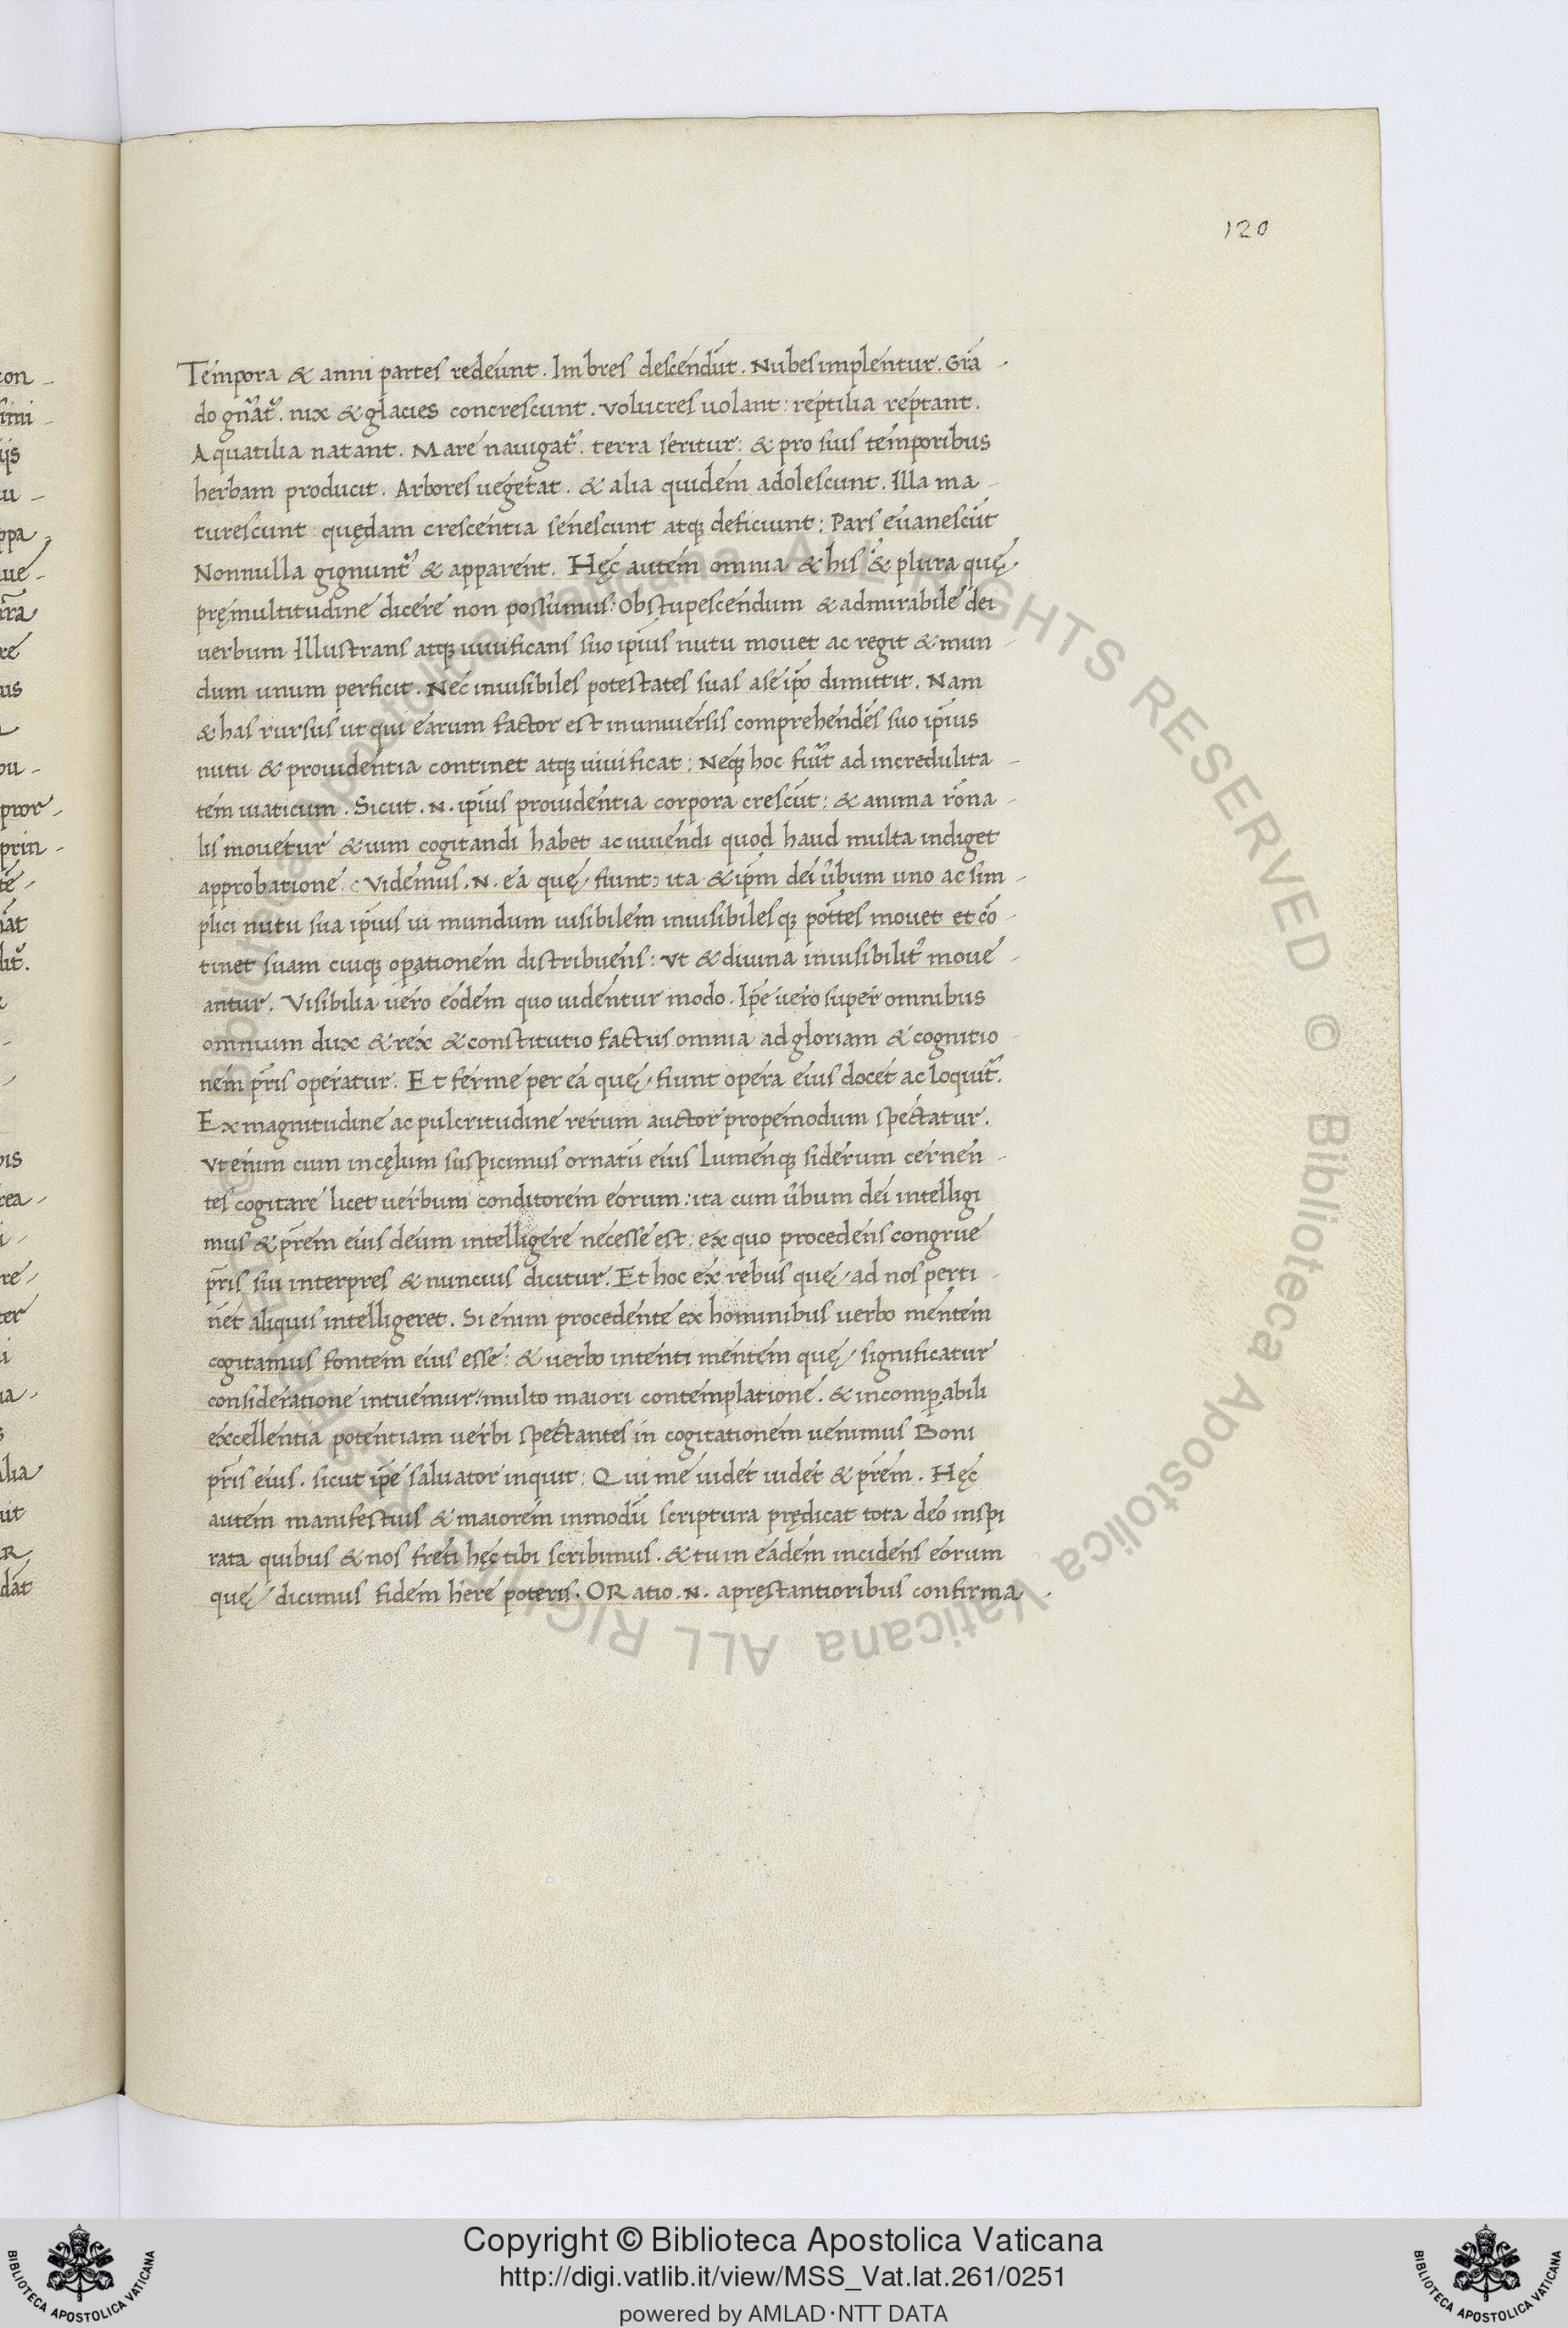 120
Tempora & anni partes redeunt. Imbres descendūt. Nubes implentur. Grā-
do gn̄at᷒. nix & glacies concrescunt. Volucres uolant: reptilia reptant.
Aquatilia natant. Mare nauigat᷒. terra seritur: & pro suis temporibus
herbam producit. Arbores uegetat. & alia quidem adolescunt. Illa ma-
turescunt quędam crescentia senescunt atq; deficiunt: Pars euanescūt
Nonnulla gignunt᷒ & apparent. Hęc autem omnia & his & plura quę
prę multitudine dicere non possumus: Obstupescendum & admirabile dei
uerbum Illustrans atq; uiuificans suo ipīus nutu mouet ac regit & mun-
dum unum perficit. Nec inuisibiles potestates suas a se ip̄o dimittit. Nam
& has rursus ut qui earum factor est in uniuersis comprehendēs suo ipīus
nutu & prouidentia continet atq; uiuificat: Neq; hoc fiūt ad incredulita-
tem uiaticum. Sicut .N. ipīus prouidentia corpora crescūt: & anima rōna-
lis mouetur & uim cogitandi habet ac uiuendi quod haud multa indiget
approbatione. Videmus .N. ea quę fiunt ita & ip̄m dei ūbum uno ac sim-
plici nutu sua ipīus ui mundum uisibilem inuisibilesq; pōttes mouet et cō-
tinet suam cuiq; oꝑationem distribuens: ut & diuina inuisibilit᷒ moue-
antur. Visibilia uero eodem quo uidentur modo. Ip̄e uero super omnibus
omnium dux & rex & constitutio factus omnia ad gloriam & cognitio-
nem pr̄is operatur. Et ferme per ea quę fiunt opera eius docet ac loquit᷒.
Ex magnitudine ac pulcritudine rerum auctor propemodum spectatur.
Vt enim cum in cęlum suspicimus ornatū eius Lumenq; siderum cernen-
tes cogitare licet uerbum conditorem eorum: ita cum ūbum dei intelligi
mus & pr̄em eius deum intelligere necesse est: ex quo procedens congrue
pr̄is sui interpres & nuncius dicitur. Et hoc ex rebus quę ad nos perti-
nēt aliquis intelligeret. Si enim procedente ex hominibus uerbo mentem
cogitamus fontem eius esse: & uerbo intenti mentem quę significatur
consideratione intuemur: multo maiori contemplatione. & incomꝑabili
excellentia potentiam uerbi spectantes in cogitationem uenimus Boni
pr̄is eius. sicut ip̄e saluator inquit: Qui me uidet uidet & pr̄em. Hęc
autem manifestius & maiorem in modū scriptura prędicat tota deo inspi
rata quibus & nos freti hęc tibi scribimus. & tu in eadem incidens eorum
quę dicimus fidem h̄ere poteris. ORatio .N. a pręstantioribus confirma-
Copyright © Biblioteca Apostolica Vaticana
http://digi.vatlib.it/view/MSS_Vat.lat.261/0251
powered by AMLAD·NTT DATA